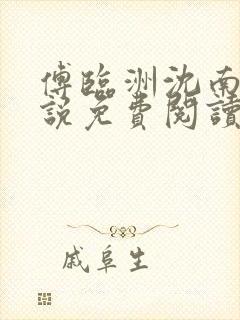 傅臨洲沈南
說免費閱讀
戚阜生